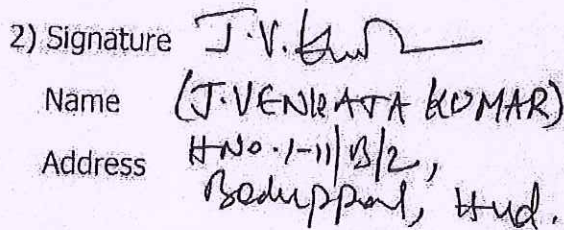 2) Signature J.V. Kum
Name (J.VENKATA KUMAR)
Address H No. 1-11/B/2,
Boduppal, Hyd.